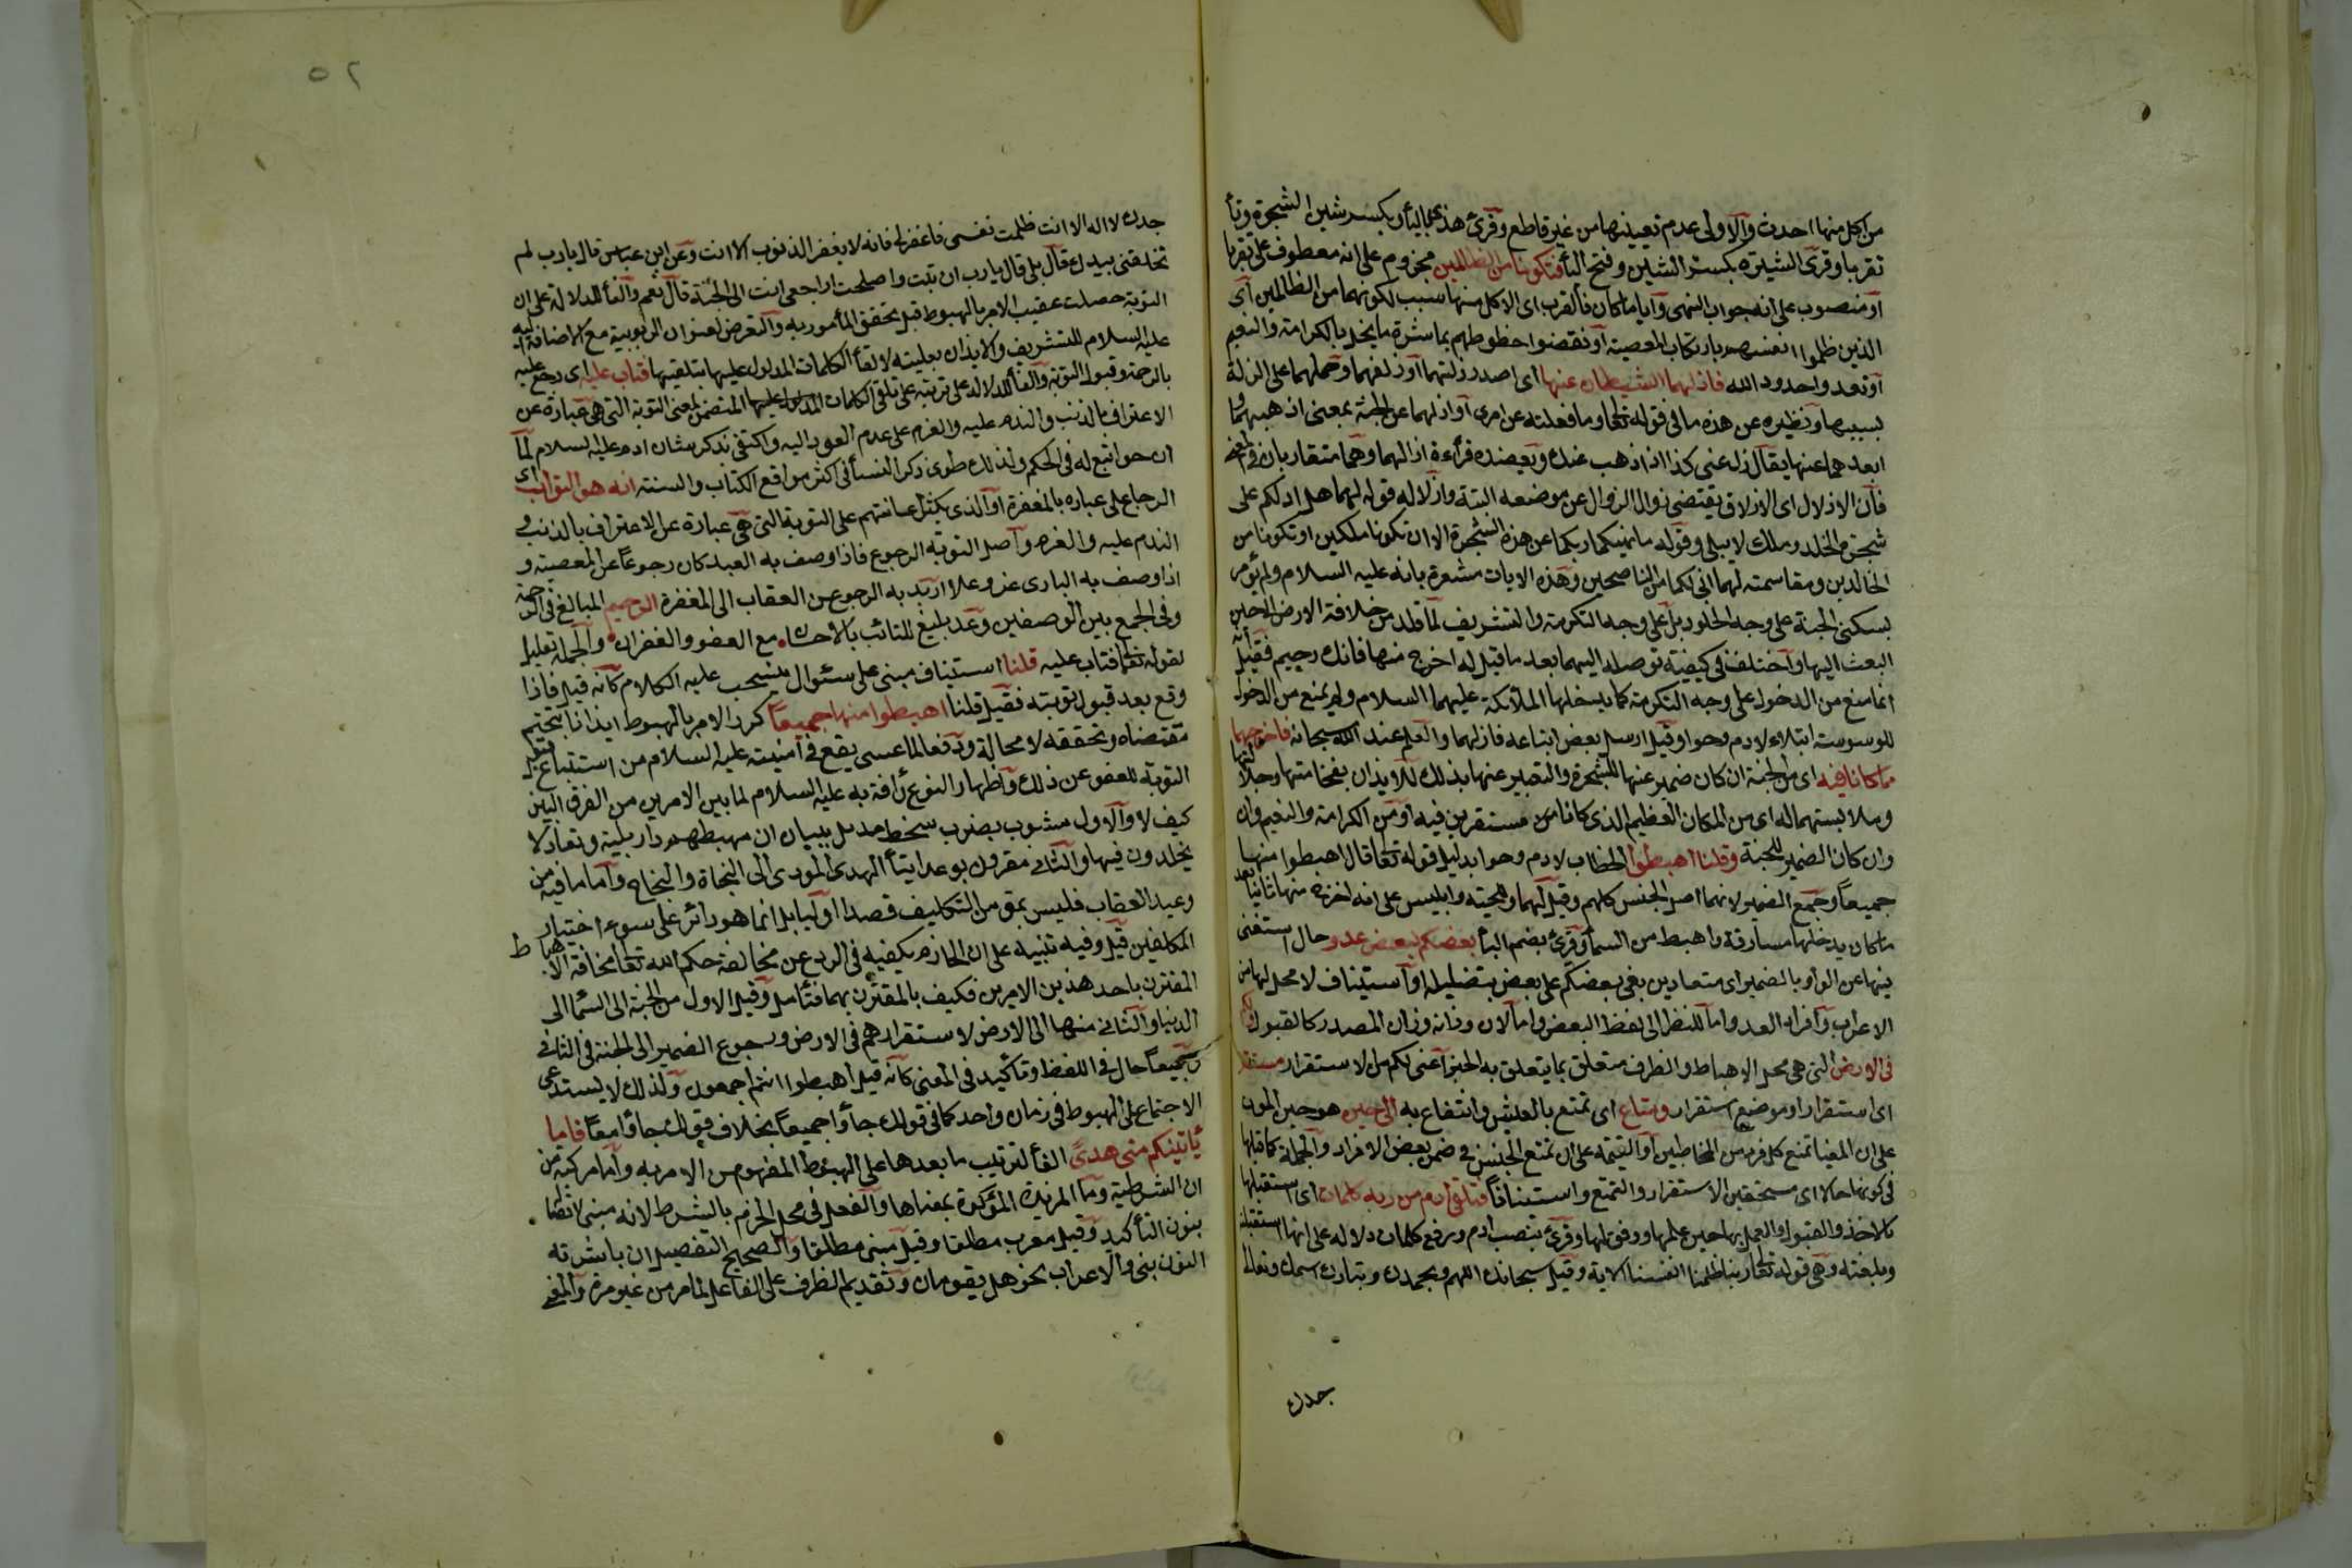 من اكل منها احدث والاولى عدم تعيينها من غير قاطع وقرئ هذى بالياء وبكسر شين الشجرة وتاء
تقربا وقرئ الشيرة بكسر الشين وفتح الياء فتكونا من الظالمين مجزوم على انه معطوف على تقربا
او منصوب على انه جواب النهى وايا ما كان فالقرب اى الاكل منها سبب لكونهما من الظالمين اى
الذين ظلموا انفسهم بارتكاب المعصية او نقضوا حظوظهم بمباشرة ما يخل بالكرامة والنعيم
او تعدوا حدود الله فازلهما الشيطان عنها اى اصدر زلتهما او ازلقهما وحملهما على الزلة
بسببها ونظيره عن هذه ما فى قوله تعالى وما فعلته عن امرى او ازلهما عن الجنة بمعنى اذهبهما و
ابعدهما عنها يقال زل عنى كذا اذا ذهب عنك ويعضده قراءة ازالهما وهما متقاربان فى المعنى
فان الازلال اى الازلاق يقتضى زوال الزوال عن موضعه البتة وازلاله قوله لهما هل ادلكم على
شجرة الخلد وملك لا يبلى وقوله ما نهيكما ربكما عن هذه الشجرة الا ان تكونا ملكين او تكونا من
الخالدين ومقاسمته لهما انى لكما من الناصحين وهذه الايات مشعرة بانه عليه السلام ولم يؤمر
بسكنى الجنة على وجه الخلود بل على وجه التكرمة والتشريف لما قلد من خلافة الارض الى حين
البعث اليها واختلف فى كيفية توصله اليهما بعد ما قيل له اخرج منها فانك رجيم فقيل انه
انما منع من الدخول على وجه التكرمة كما يدخلها الملائكة عليهما السلام ولم يمنع من الدخول
للوسوسة ابتلاء لادم وحوا وقيل ارسل بعض اتباعه فازلهما والعلم عند الله سبحانه فاخرجهما
مما كانا فيه اى من الجنة ان كان ضمير عنها للشجرة والتعبير عنها بذلك للايذان بفخامتها وجلالتها
وملابستهما له اى من المكان العظيم الذى كانا مستقرين فيه او من الكرامة والنعيم وان
وان كان الضمير للجنة وقلنا اهبطوا الخطاب لادم وحوا بدليل قوله تعالى قال اهبطوا منها
جميعاً وجمع الضمير لانهما اصل الجنس كلهم وقيل لهما وللحية وابليس على انه اخرج منها ثانيا بعد
ما كان يدخلها مسارقة واهبط من السماء وقرئ بضم الباء بعضكم لبعض عدو حال استغنى
فيها عن الواو بالضمير اى متعادين يبغى بعضكم على بعض بتضليله او استيناف لا محل لها من
الاعراب وافراد العدو اما للنظر الى لفظ البعض واما لان وزانه وزان المصدر كالقبول ولكم
فى الارض التى هى محل الاهباط والظرف متعلق بما يتعلق به الخبر اعنى لكم من الاستقرار مستقر
اى استقرار او موضع استقرار ومتاع اى تمتع بالعيش وانتفاع به الى حين هو حين الموت
على ان المغيا تمتع كل فرد من المخاطبين او القيمة على ان تمتع الجنس فى ضمن بعض الافراد والجملة كما قبلها
فى كونها حالا اى مستحقين الاستقرار والتمتع واستينافاً فتلقى ادم من ربه كلمات اى استقبلها
بالاخذ والقبول والعمل بها حين علمها ووفق لها وقرئ بنصب ادم ورفع كلمات دلالة على انها استقبلته
وبلغته وهى قوله تعالى ربنا ظلمنا انفسنا الاية وقيل سبحانك اللهم وبحمدك وتبارك اسمك وتعالى
جدك
٥٢
جدك لا اله الا انت ظلمت نفسى فاغفر لى فانه لا يغفر الذنوب الا انت وعن ابن عباس قال يا رب لم
تخلقنى بيدك قال بلى قال يا رب ان تبت واصلحت اراجعى انت الى الجنة قال نعم والفاء للدلالة على ان
التوبة حصلت عقيب الامر بالهبوط قبل تحقق المأمور به والتعرض لعنوان الربوبية مع الاضافة اليه
عليه السلام للتشريف والايذان بعليته لالقاء الكلمات المدلول عليها بتلقيها فتاب عليه اى رجع عليه
بالرحمة وقبول التوبة والفاء للدلالة على ترتبه على تلقى الكلمات المدلول عليها المتضمن لمعنى التوبة التى هى عبارة عن
الاعتراف بالذنب والندم عليه والعزم على عدم العود اليه واكتفى بذكر شان ادم عليه السلام لما
ان حوا تبع له فى الحكم ولذلك طوى ذكر النساء فى اكثر مواقع الكتاب والسنة انه هو التواب اى
الرجاع على عباده بالمغفرة او الذى يكثر اعانتهم على التوبة التى هى عبارة عن الاعتراف بالذنب و
الندم عليه والعزم واصل التوبة الرجوع فاذا وصف به العبد كان رجوعاً عن المعصية و
اذا وصف به البارى عز وعلا اريد به الرجوع عن العقاب الى المغفرة الرحيم المبالغ فى الرحمة
وفى الجمع بين الوصفين وعد بليغ للتائب بالاحسان مع العفو والغفران والجملة تعليل
لقوله تعالى فتاب عليه قلنا استيناف مبنى على سئوال ينسحب عليه الكلام كانه قيل فاذا
وقع بعد قبول توبته فقيل قلنا اهبطوا منها جميعاً كرر الامر بالهبوط ايذانا بتحتم
مقتضاه وتحققه لا محالة ودفعا لما عسى يقع فى امنيته عليه السلام من استتباع قبول
التوبة للعفو عن ذلك واظهار النوع رأفة به عليه السلام لما بين الامرين من الفرق البين
كيف لا والاول مشوب بضرب سخط مذيل ببيان ان مهبطهم دار بلية وتعاد لا
يخلدون فيها والثانى مقرون بوعد ايتاء الهدى المودى الى النجاة والنجاح واما ما فيه من
وعيد العقاب فليس بمق من التكليف قصدا اوليا بل انما هو دائر على سوء اختيار
المكلفين قيل وفيه تنبيه على ان الحازم يكفيه فى الردع عن مخالفة حكم الله تعالى مخافة الاهباط
المقترن باحد هذين الامرين فكيف بالمقترن بهما فتأمل وقيل الاول من الجنة الى السماء الى
الدنيا والثانى منها الى الارض لاستقرارهم فى الارض ورجوع الضمير الى الجنة فى الثانى
وجميعاً حال فى اللفظ وتأكيد فى المعنى كانه قيل اهبطوا انتم اجمعون ولذلك لا يستدعى
الاجتماع على الهبوط فى زمان واحد كما فى قولك جاؤا جميعاً بخلاف قولك جاؤا معاً فاما
يأتينكم منى هدىً الفاء لترتيب ما بعدها على الهبوط المفهوم من الامر به واما مركبة من
ان الشرطية وما المزيدة المؤكدة بمعناها والفعل فى محل الجزم بالشرط لانه مبنى لاتصاله
بنون التأكيد وقيل معرب مطلقا وقيل مبنى مطلقا والصحيح التفصيل ان باشرته
النون بنى والا اعراب نحو هل يقومان وتقديم الظرف على الفاعل لما مر من غير مرة والمعنى